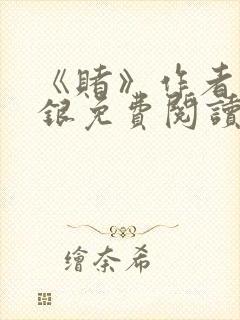 《賭》作者
銀免費閱讀
繪奈希